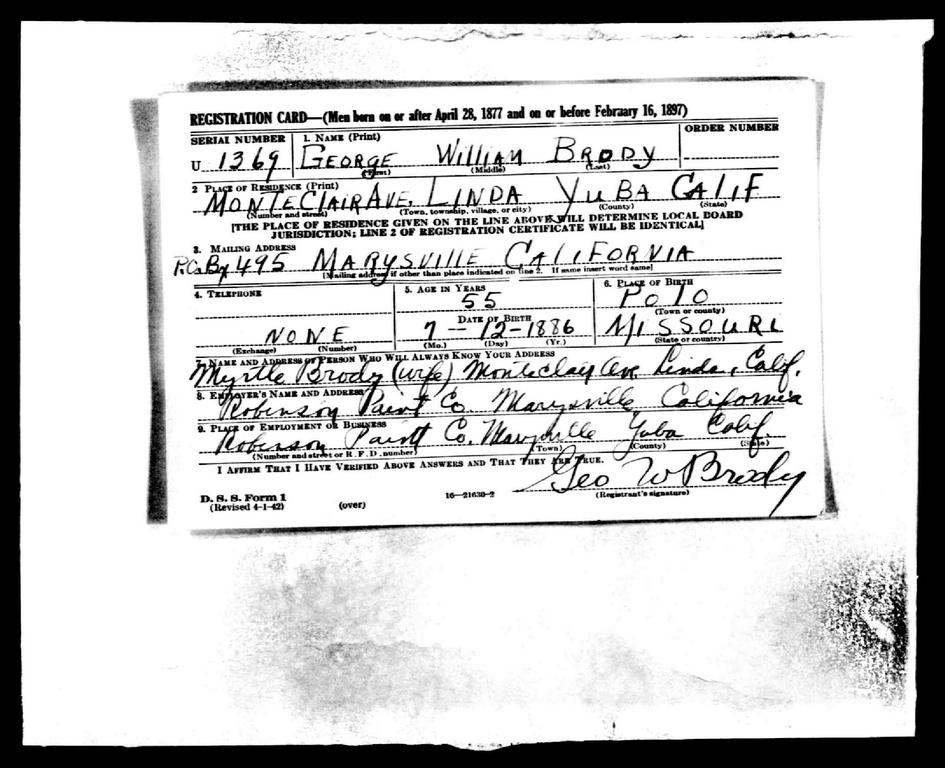 REGISTRATION CARD—(Men born on or after April 28, 1877 and on or before February 16, 1897)
SERIAL NUMBER 1. NAME (Print) ORDER NUMBER
U 1369 GEORGE WILLIAM BRODY
(First) (Middle) (Last)
2 PLACE OF RESIDENCE (Print)
MONTECLAIR AVE. LINDA YUBA CALIF
(Number and street) (Town, township, village, or city) (County) (State)
[THE PLACE OF RESIDENCE GIVEN ON THE LINE ABOVE WILL DETERMINE LOCAL BOARD
JURISDICTION; LINE 2 OF REGISTRATION CERTIFICATE WILL BE IDENTICAL]
3. MAILING ADDRESS
P.O. Bx 495 MARYSVILLE CALIFORNIA
[Mailing address if other than place indicated on line 2. If same insert word same]
4. TELEPHONE 5. AGE IN YEARS 6. PLACE OF BIRTH
55 POLO
DATE OF BIRTH (Town or county)
NONE 7 — 12 — 1886 MISSOURI
(Exchange) (Number) (Mo.) (Day) (Yr.) (State or country)
7. NAME AND ADDRESS OF PERSON WHO WILL ALWAYS KNOW YOUR ADDRESS
Myrtle Brody (wife) Monteclair Ave Linda, Calif.
8. EMPLOYER'S NAME AND ADDRESS
Robinson Paint Co. Marysville California
9. PLACE OF EMPLOYMENT OR BUSINESS
Robinson Paint Co. Marysville Yuba Calif.
(Number and street or R. F. D. number) (Town) (County) (State)
I AFFIRM THAT I HAVE VERIFIED ABOVE ANSWERS AND THAT THEY ARE TRUE.
Geo W Brody
D. S. S. Form 1 16—21630-2 (Registrant's signature)
(Revised 4-1-42) (over)